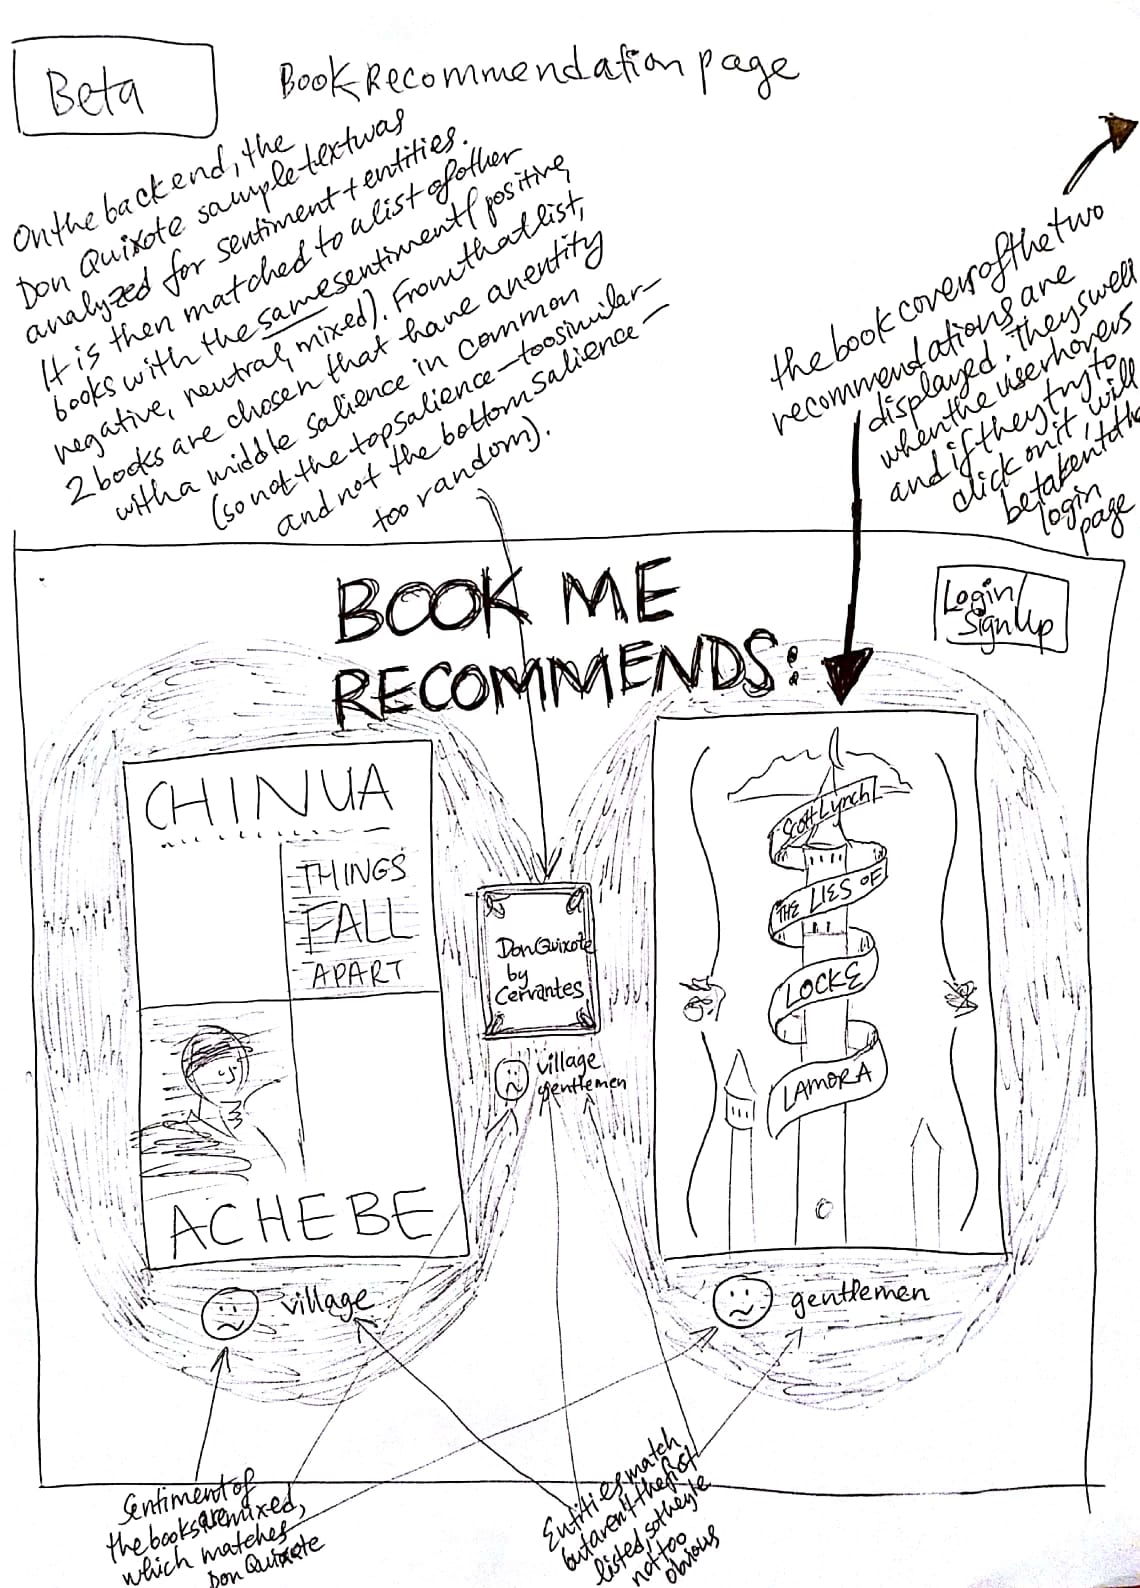 Beta
Book Recommendation page
On the back end, the
Don Quixote sample text was
analyzed for sentiment + entities.
It is then matched to a list of other
books with the same sentiment (positive,
negative, neutral, mixed). From that list,
2 books are chosen that have an entity
with a middle salience in common
(so not the top salience - too similar -
and not the bottom salience -
too random).
the book covers of the two
recommendations are
displayed. They swell
when the user hovers
and if they try to
click on it, will
be taken to the
login
page
BOOK ME
RECOMMENDS:
Login/
Sign Up
CHINUA
THINGS
FALL
APART
ACHEBE
village
Don Quixote
by
Cervantes
village
gentlemen
Scott Lynch
THE LIES OF
LOCKE
LAMORA
gentlemen
Sentiment of
the books are mixed,
which matches
Don Quixote
Entities match
but aren't the first
listed, so they're
not too
obvious